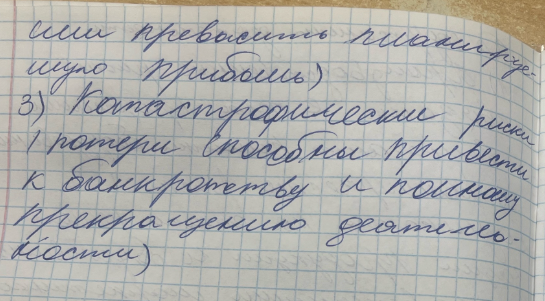 или превысить планируе-
мую прибыль)
3) Катастрофические риски
(потери способны привести
к банкротству и полному
прекращению деятель-
ности)